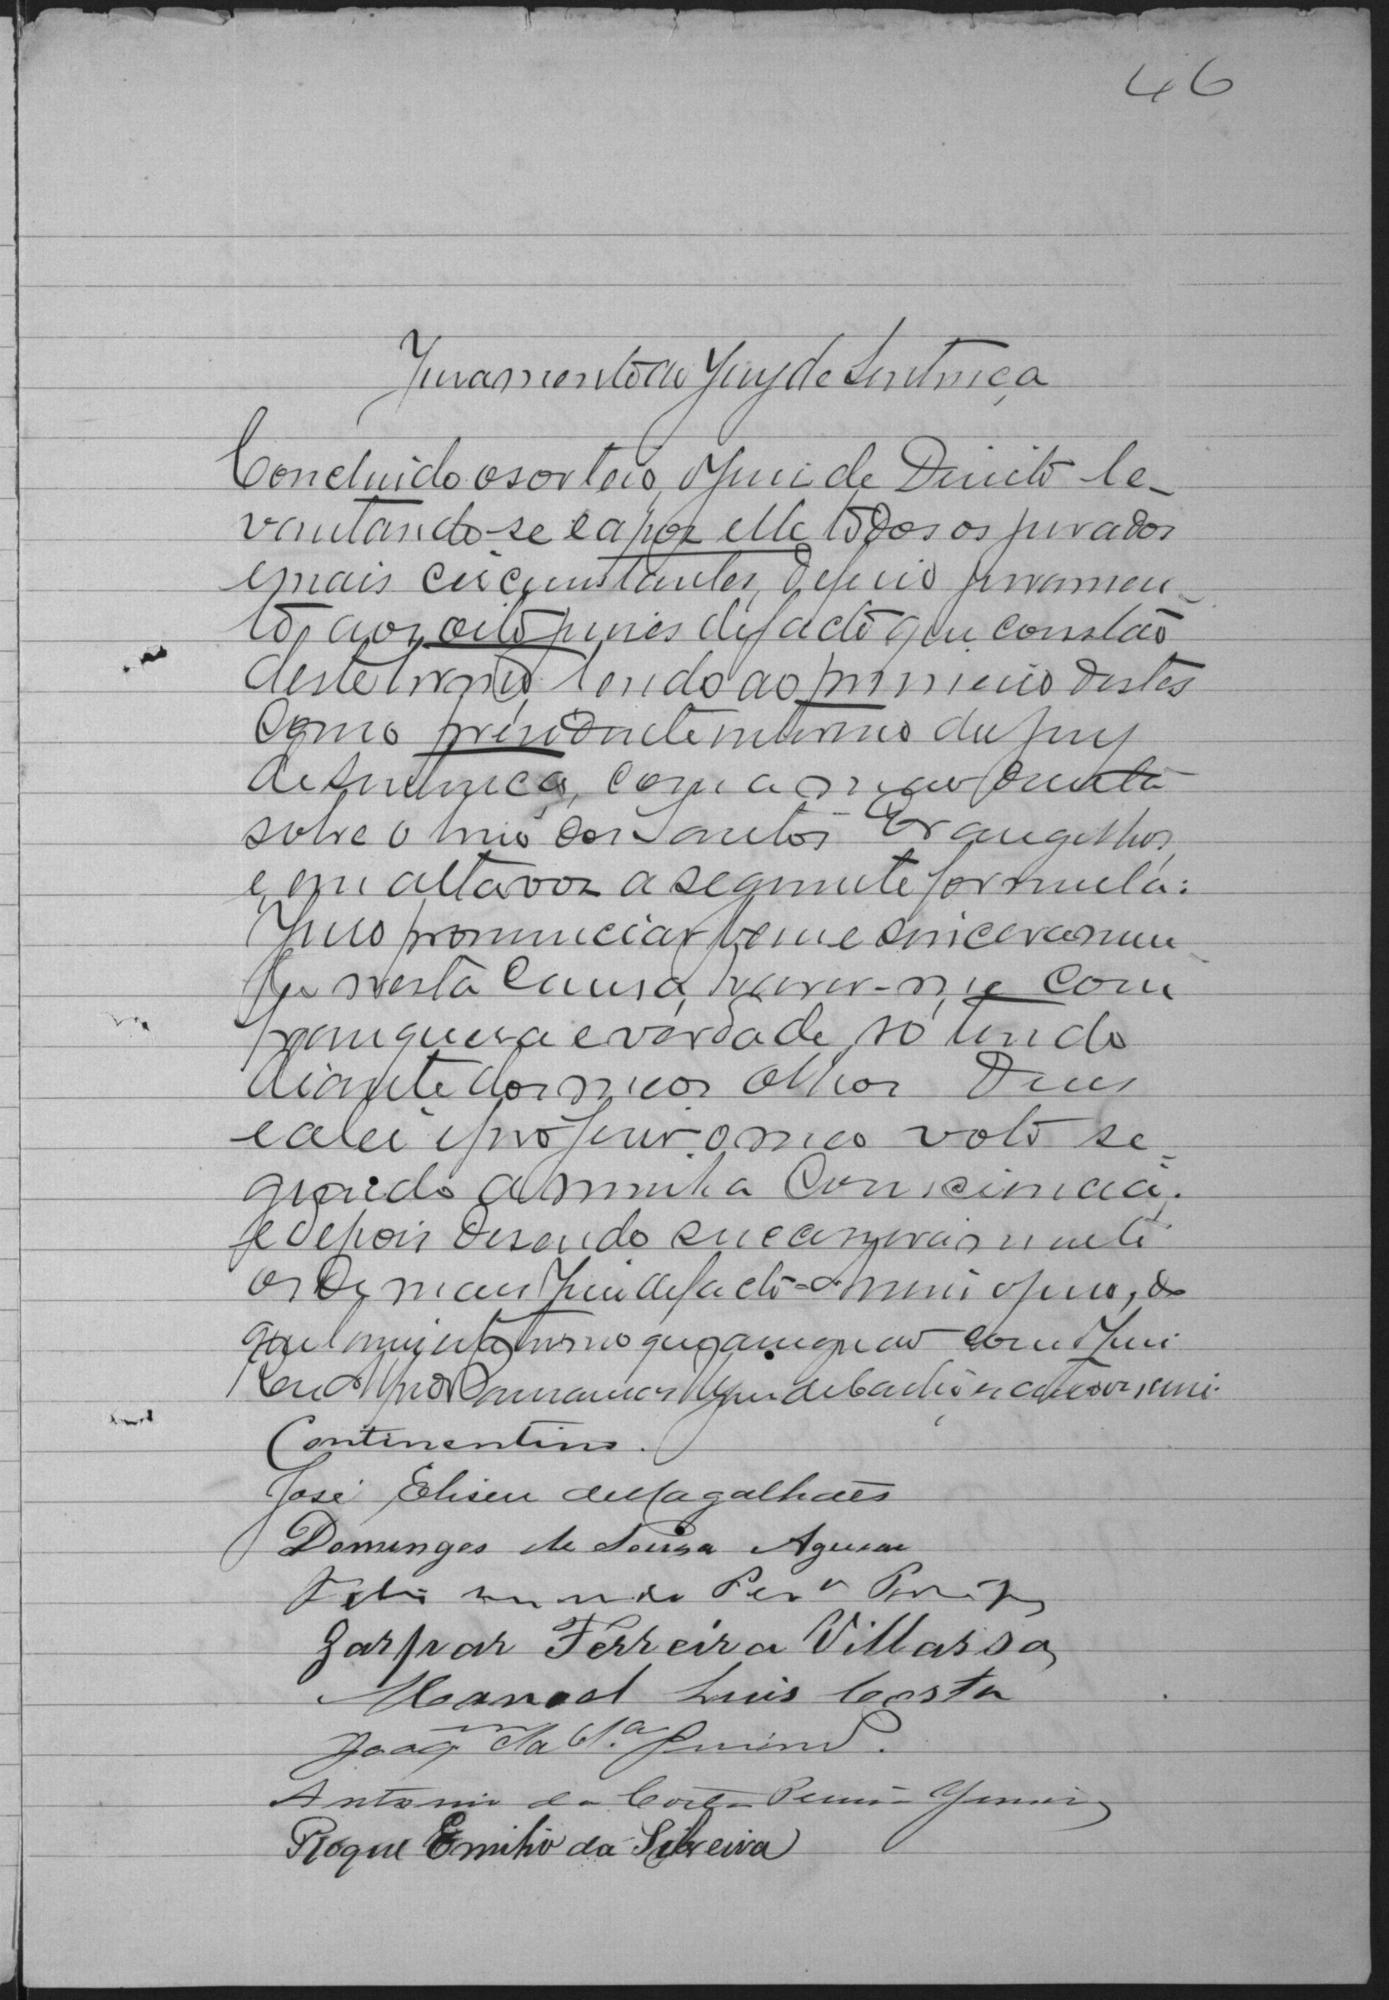 46
Juramento do Jury de Sentença
Concluido o sorteio, o Juiz de Direito le-
vantando-se e apoz elle todos os jurados
e mais circumstantes, deferio juramen-
to aos oito juizes de facto que constão
deste termo, lendo ao primeiro destes
como presidente interino do jury
de sentença, com a mão direita
sobre o livro dos Santos Evangelhos,
e em alta voz a seguinte formula:
Juro pronunciar bem e sinceramen-
te nesta causa, haver-me com
franqueza e verdade, só tendo
diante dos meus olhos Deus
e a lei e proferir o meo voto se-
gundo a minha consciencia;
e depois disendo successivamente
os demais Juizes de facto - assim o juro, do
que lavrei este termo que assignão com o Juiz
Continentino.
José Eliseu de Magalhães
Domingos de Souza Aguiar
Gaspar Ferreira Villassa
Manoel Luis Costa
Joaqm da
Antonio da Costa Junior
Roque Emilio da Silveira